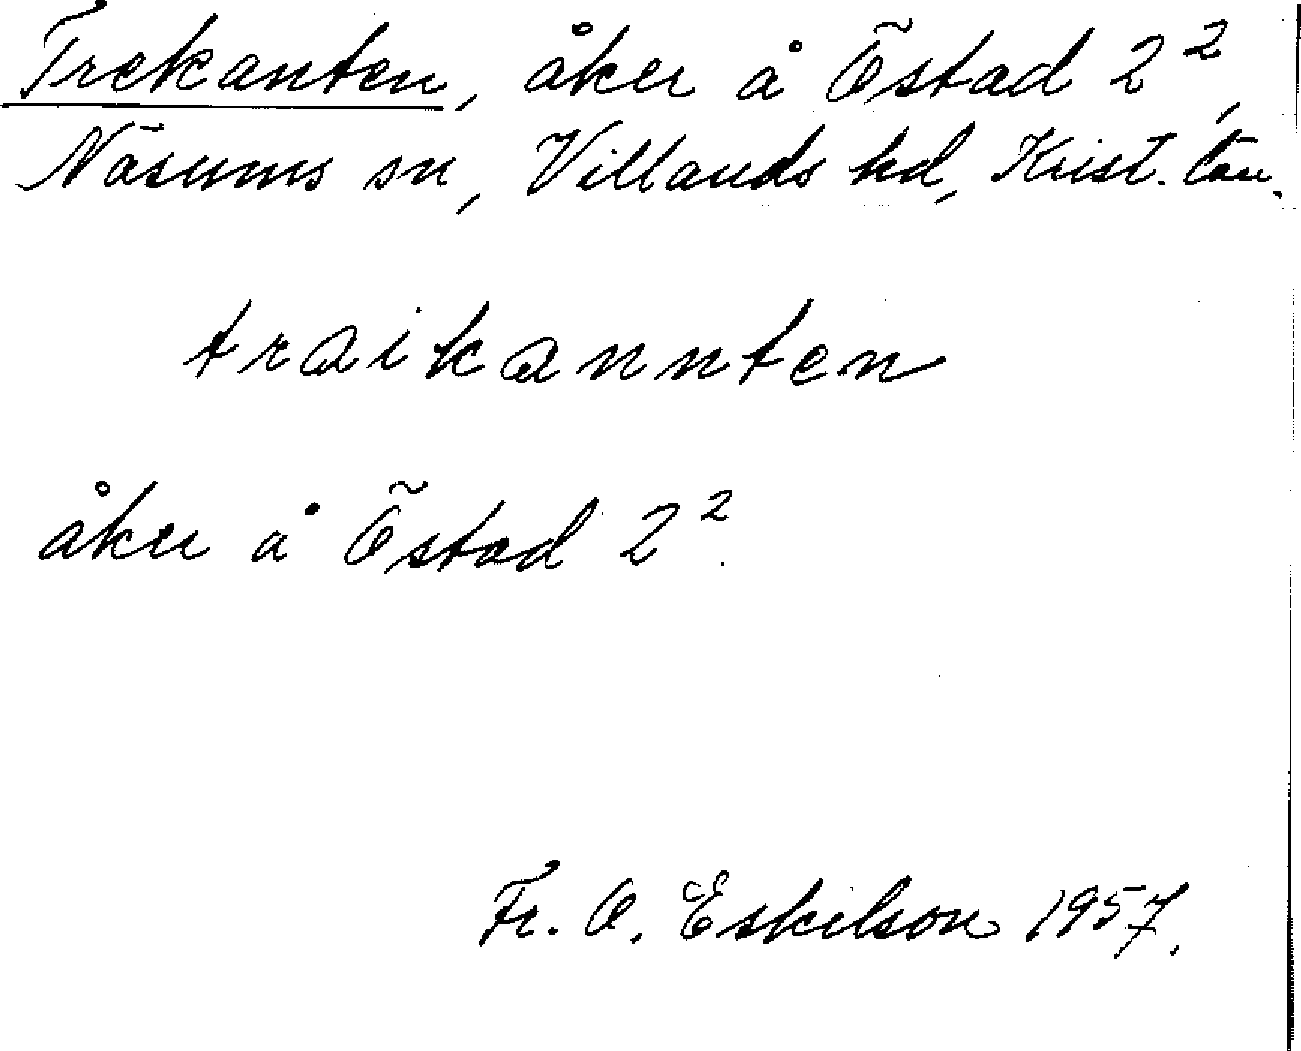 Trekanten, åker å Östad 2²,
Näsums sn, Villands hd, Krist. län.
traikannten
åker å Östad 2².
Fr. O. Eskilson 1957.